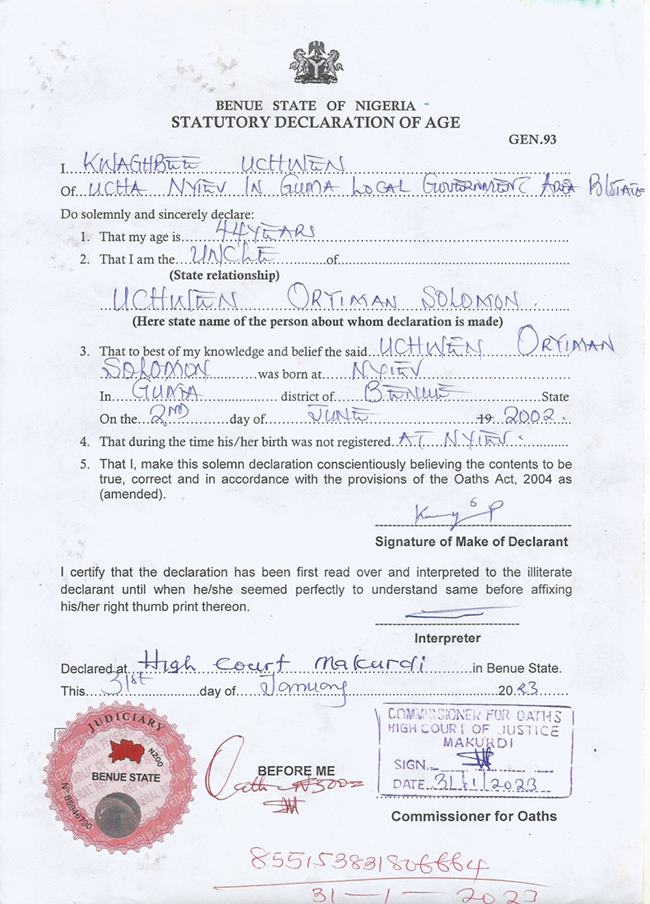 BENUE STATE OF NIGERIA
STATUTORY DECLARATION OF AGE
GEN.93
I KWAGHBEE UCHWEN
Of UCHA NYIEV IN GUMA LOCAL GOVERNMENT AREA B/STATE
Do solemnly and sincerely declare:
1. That my age is 44 YEARS
2. That I am the UNCLE of
(State relationship)
UCHWEN ORTIMAN SOLOMON.
(Here state name of the person about whom declaration is made)
3. That to best of my knowledge and belief the said UCHWEN ORTIMAN
SOLOMON was born at NYIEV
In GUMA district of BENUE State
On the 2ND day of JUNE 19 2002.
4. That during the time his/her birth was not registered AT NYIEV.
5. That I, make this solemn declaration conscientiously believing the contents to be
true, correct and in accordance with the provisions of the Oaths Act, 2004 as
(amended).
Signature of Make of Declarant
I certify that the declaration has been first read over and interpreted to the illiterate
declarant until when he/she seemed perfectly to understand same before affixing
his/her right thumb print thereon.
Interpreter
Declared at High Court Makurdi in Benue State.
This 31st day of January 2023
JUDICIARY
N200
BENUE STATE
BEFORE ME
COMMISSIONER FOR OATHS
HIGH COURT OF JUSTICE
MAKURDI
SIGN.
DATE 31/1/2023
Commissioner for Oaths
31-1-2023